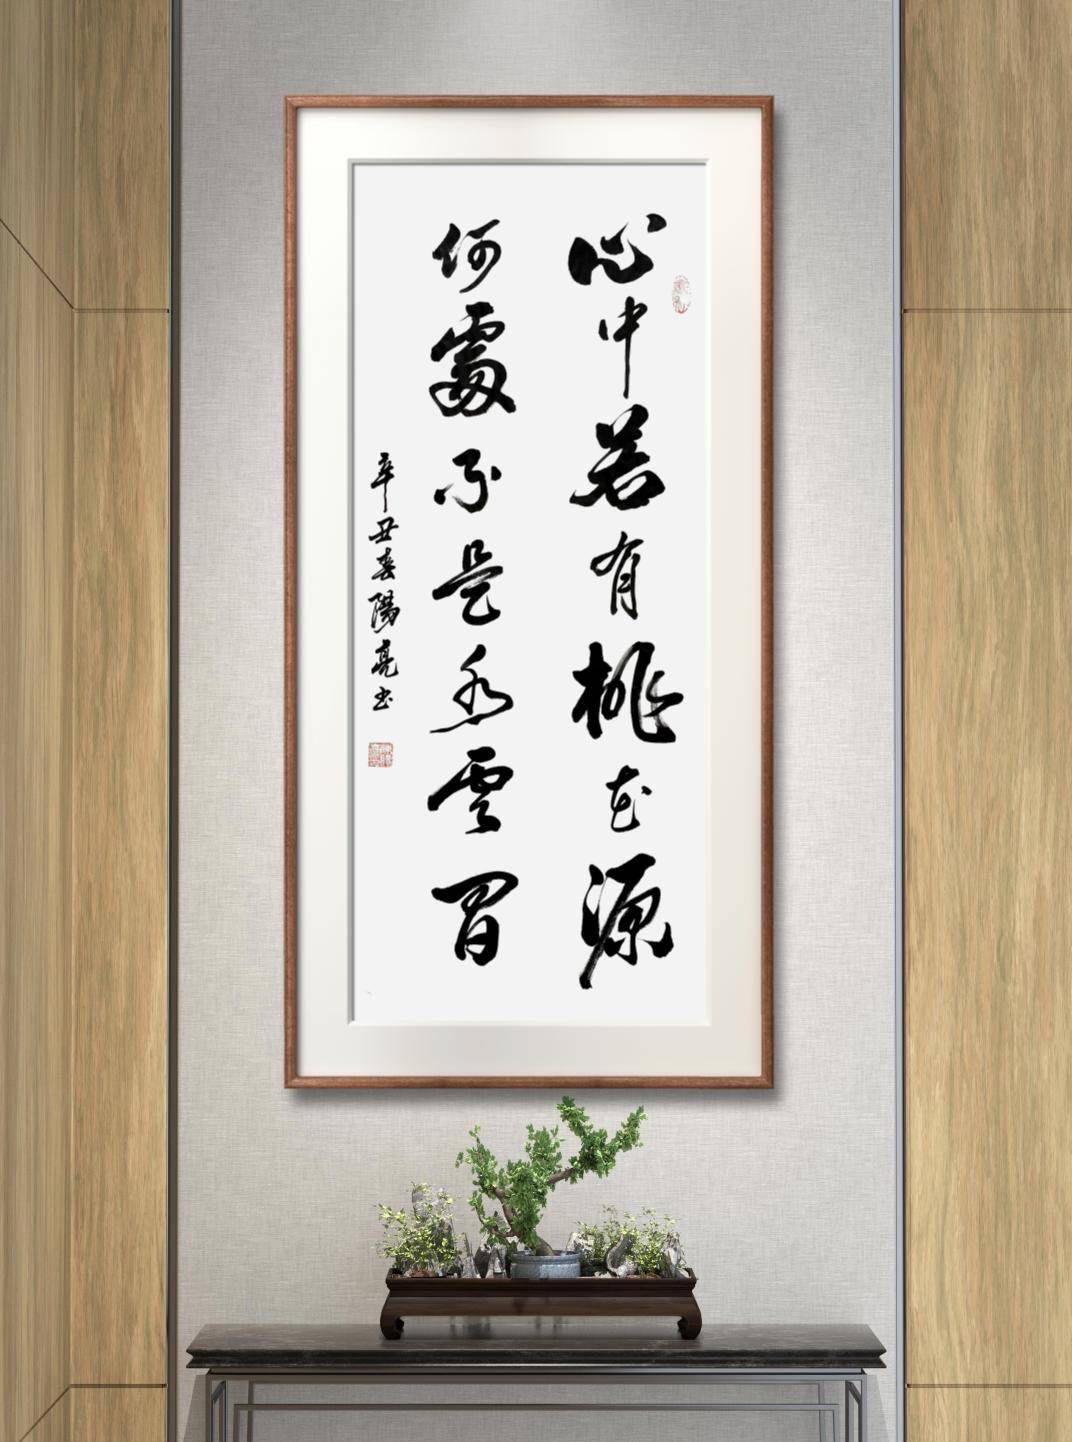 心中若有桃花源
何處不是水雲間
辛丑春陽亮书